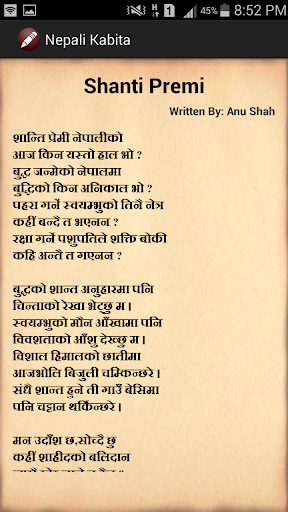 45% 8:52 PM
Nepali Kabita
Shanti Premi
Written By: Anu Shah
शान्ति प्रेमी नेपालीको
आज किन यस्तो हाल भो ?
बुद्ध जन्मेको नेपालमा
बुद्धिको किन अनिकाल भो ?
पहरा गर्ने स्वयम्भुको तिनै नेत्र
कहीं बन्दै त भएनन ?
रक्षा गर्ने पशुपतिले शक्ति बोकी
कहि अन्तै त गएनन ?
बुद्धको शान्त अनुहारमा पनि
चिन्ताको रेखा भेट्छु म ।
स्वयम्भुको मौन आँखामा पनि
विवशताको आँशु देख्छु म ।
विशाल हिमालको छातीमा
आजभोलि बिजुली चम्किन्छरे ।
संधै शान्त हुने ती गाउँ बेसिमा
पनि चट्टान थर्किन्छरे ।
मन उदाँश छ,सोच्दै छु
कहीं शाहीदको बलिदान